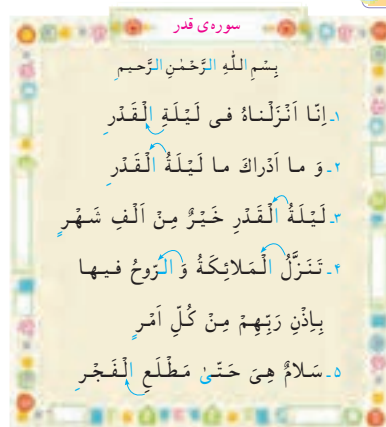 سوره‌ی قدر
بِسْمِ اللّٰهِ الرَّحْمٰنِ الرَّحيمِ
۱ـ اِنّا اَنْزَلْناهُ فی لَیْلَةِ الْقَدْرِ
۲ـ وَ ما اَدْراكَ ما لَیْلَةُ الْقَدْرِ
۳ـ لَیْلَةُ الْقَدْرِ خَیْرٌ مِنْ اَلْفِ شَهْرٍ
۴ـ تَنَزَّلُ الْمَلائِكَةُ وَ الرّوحُ فیها
بِاِذْنِ رَبِّهِمْ مِنْ كُلِّ اَمْرٍ
۵ـ سَلامٌ هِیَ حَتّیٰ مَطْلَعِ الْفَجْرِ